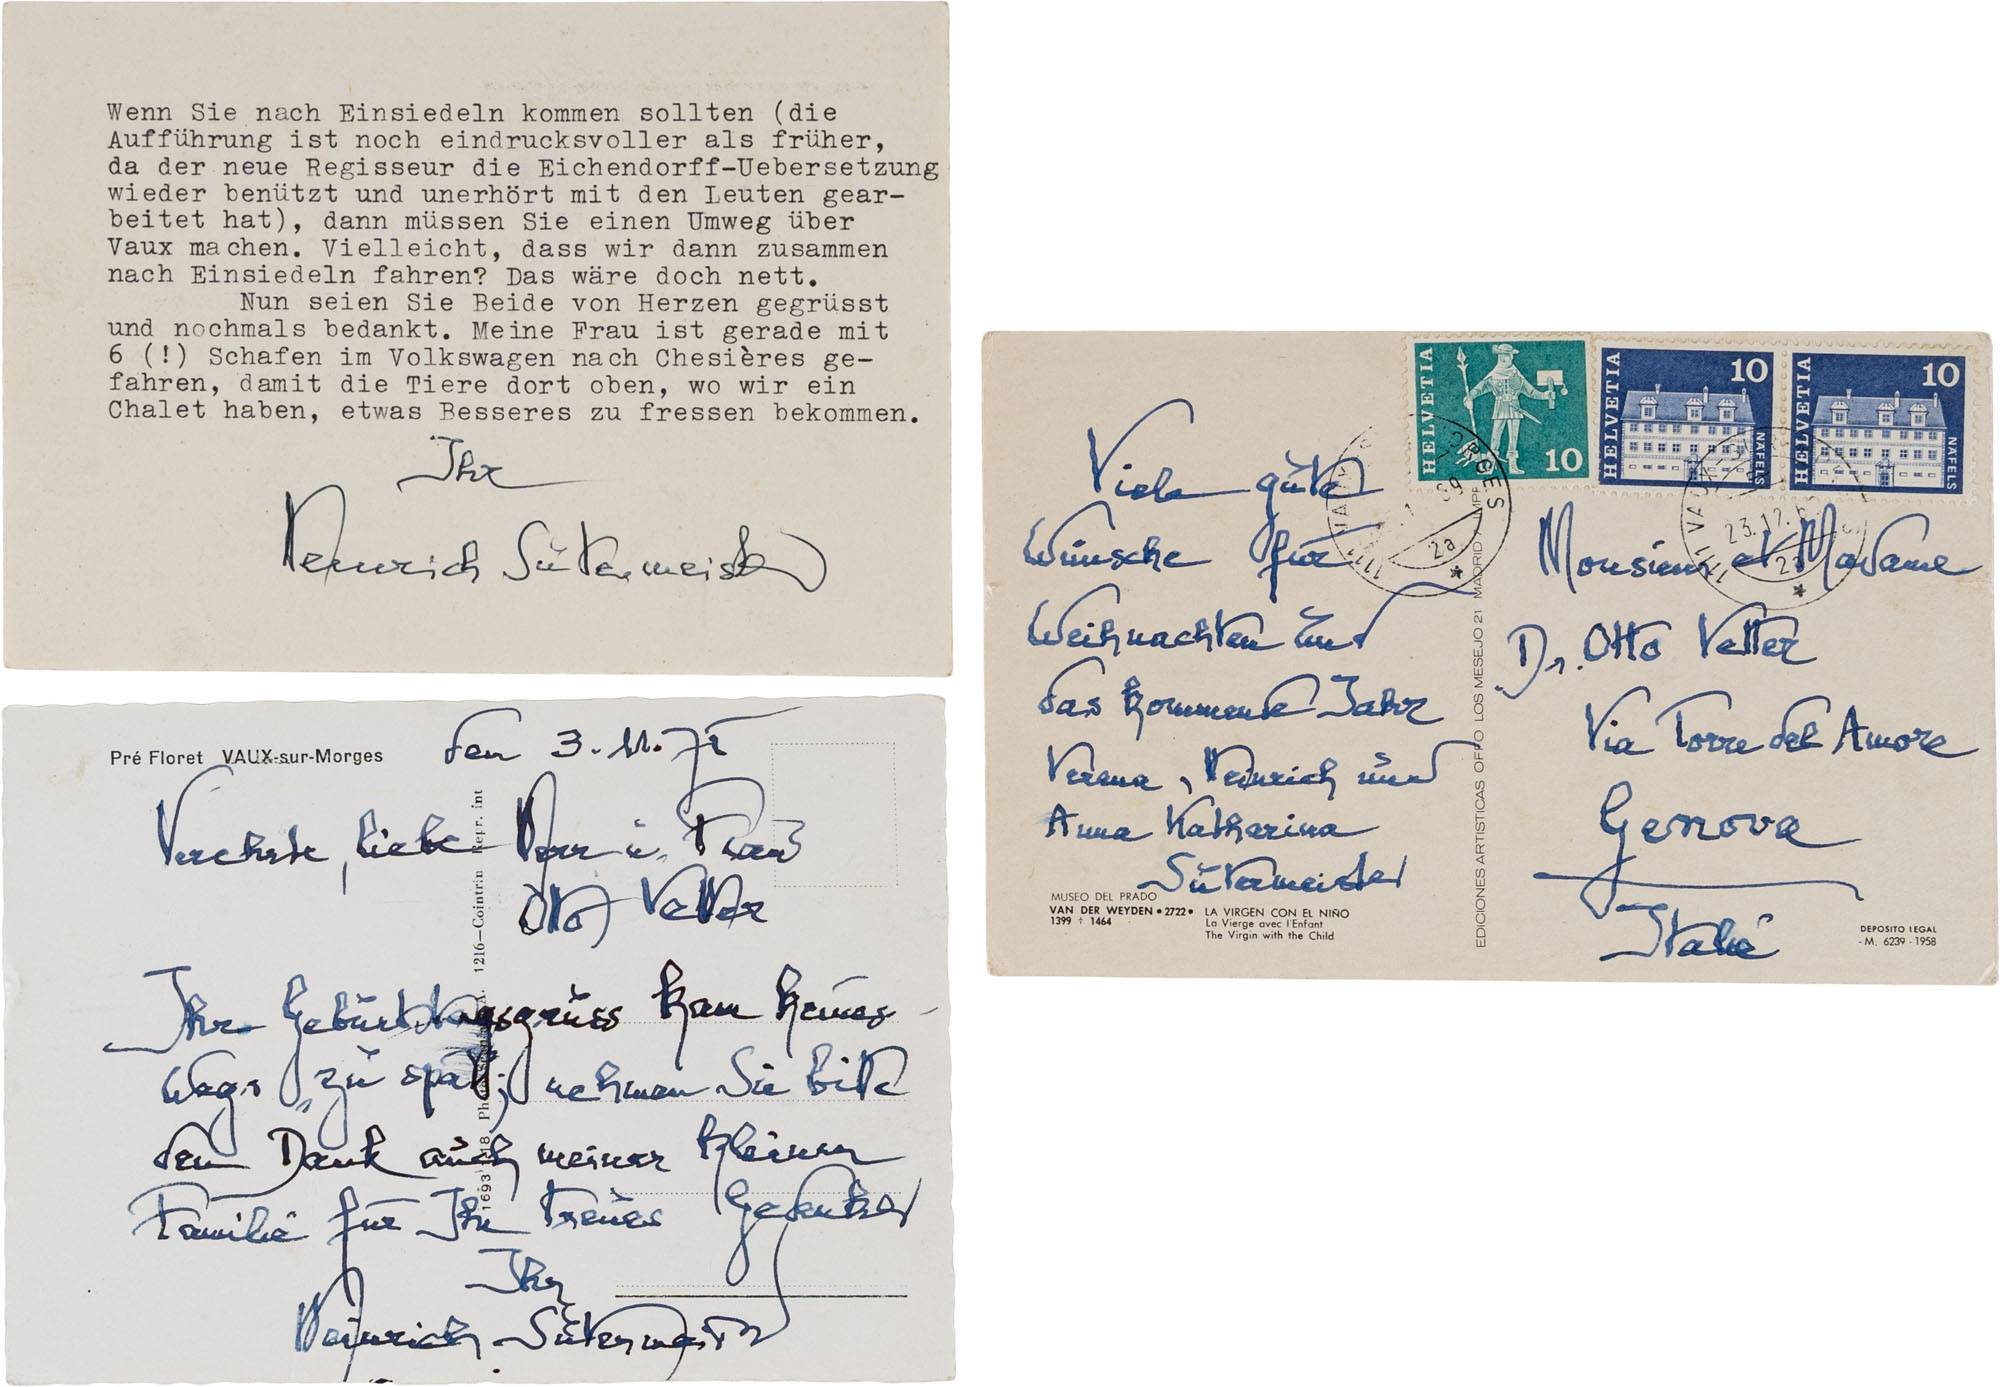 Wenn Sie nach Einsiedeln kommen sollten (die
Aufführung ist noch eindrucksvoller als früher,
da der neue Regisseur die Eichendorff-Uebersetzung
wieder benützt und unerhört mit den Leuten gear-
beitet hat), dann müssen Sie einen Umweg über
Vaux machen. Vielleicht, dass wir dann zusammen
nach Einsiedeln fahren? Das wäre doch nett.
Nun seien Sie Beide von Herzen gegrüsst
und nochmals bedankt. Meine Frau ist gerade mit
6 (!) Schafen im Volkswagen nach Chesières ge-
fahren, damit die Tiere dort oben, wo wir ein
Chalet haben, etwas Besseres zu fressen bekommen.
Ihr
Heinrich Sutermeister
Pré Floret VAUX-sur-Morges
den 3. 11. 75
Verehrte, liebe Herr u. Frau
Otto Vetter
Ihr Geburtstagsgruss kam keines-
wegs „zu spät; nehmen Sie bitte
den Dank auch meiner kleinen
Familie für Ihr treues Gedenken
Ihr
Heinrich Sutermeister
1216-Cointrin Repr. int
HELVETIA 10
HELVETIA 10 NÄFELS
HELVETIA 10 NÄFELS
1111 VAUX-S
ORGES
2a
1111 VAUX-S
23.12.6
2a
Viele gute
Wünsche für
Weihnachten und
das kommende Jahr
Verena, Heinrich und
Anna Katharina
Sutermeister
MUSEO DEL PRADO
VAN DER WEYDEN • 2722 • LA VIRGEN CON EL NIÑO
1399 † 1464 La Vierge avec l'Enfant
The Virgin with the Child
EDICIONES ARTISTICAS OFFO LOS MESEJO 21 MADRID
Monsieur et Madame
Dr. Otto Vetter
Via Torre del Amore
Genova
Italie
DEPOSITO LEGAL
- M. 6239 - 1958